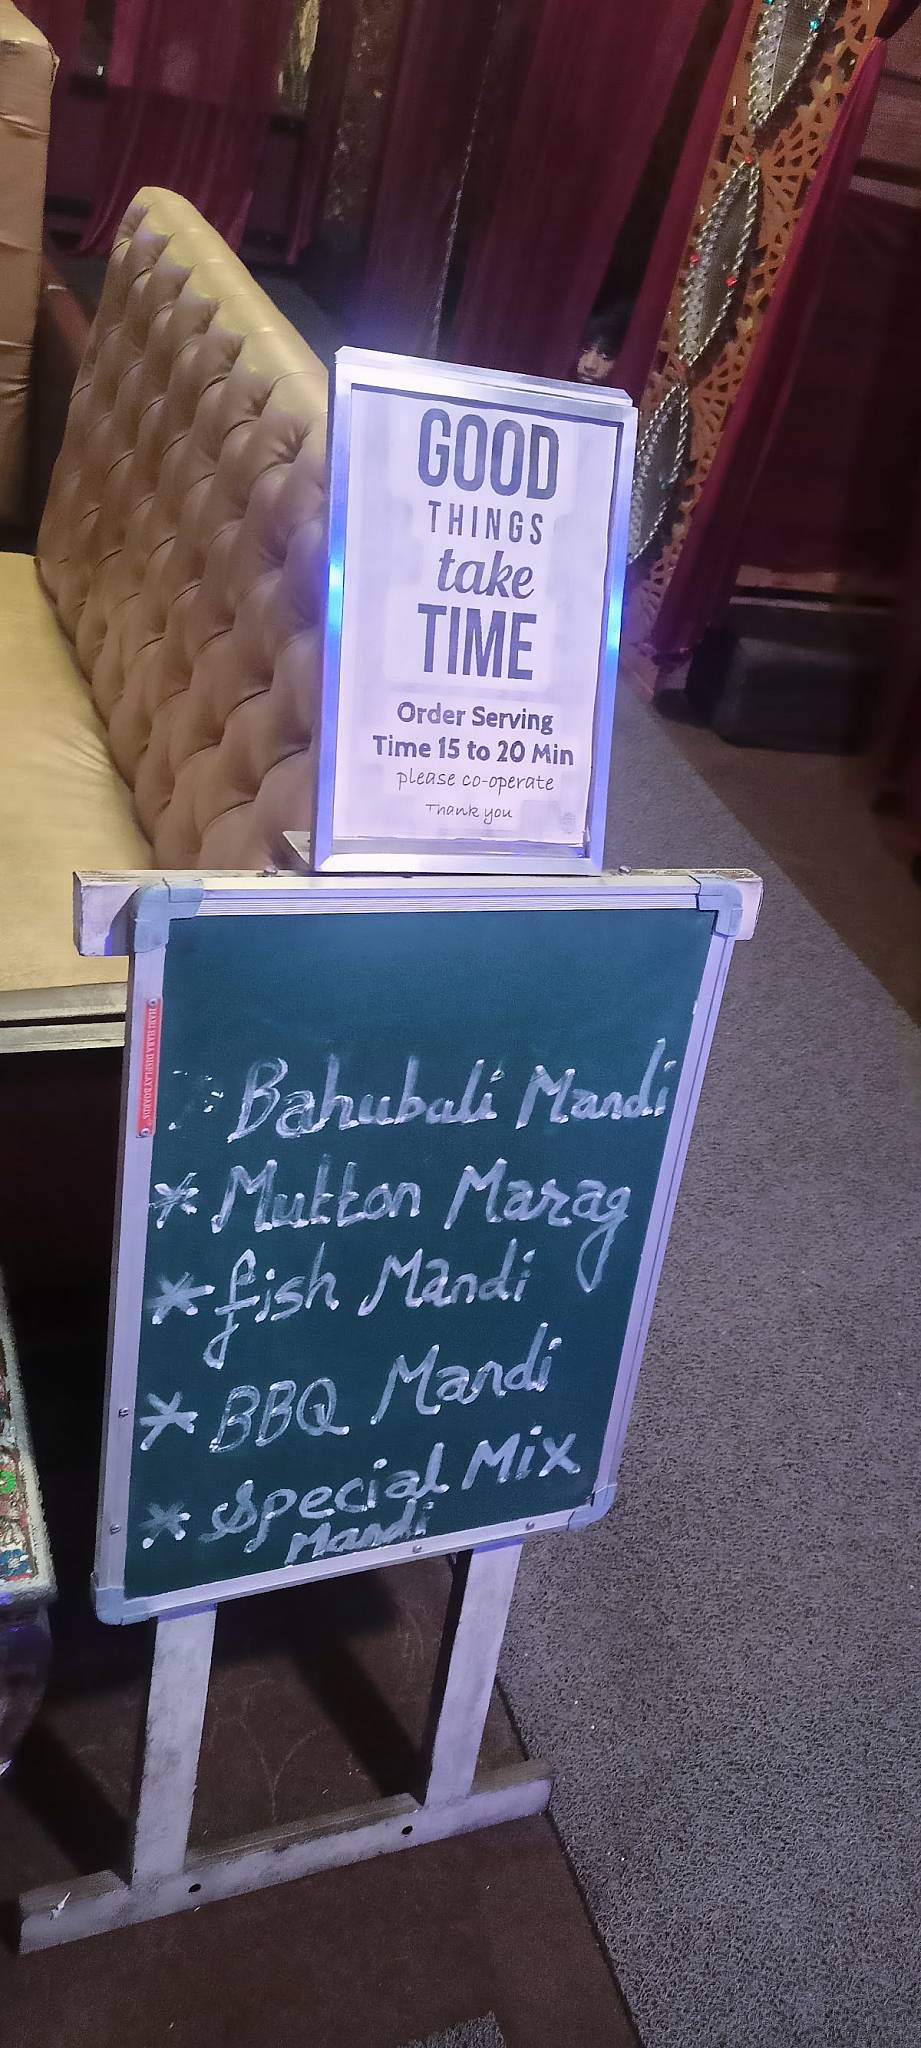 GOOD
THINGS
take
TIME
Order Serving
Time 15 to 20 Min
please co-operate
Thank you
HARI HARA DISPLAY BOARDS
Bahubali Mandi
* Mutton Marag
* fish Mandi
* BBQ Mandi
* Special Mix
Mandi